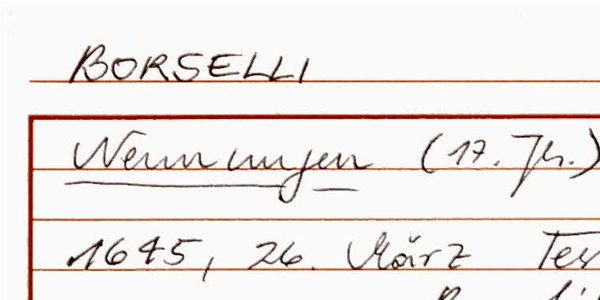 BORSELLI
Nennungen (17. Jh.)
1645, 26. März Tes